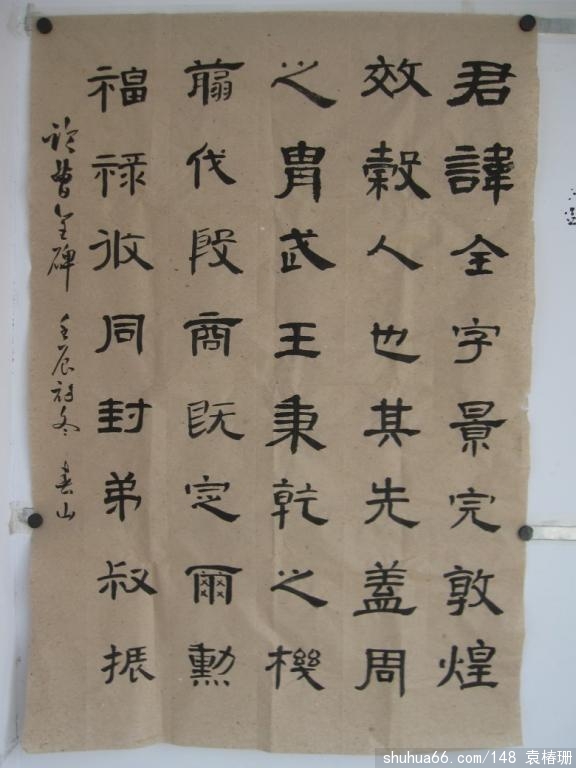 君諱全字景完敦煌
效穀人也其先蓋周
之胄武王秉乾之機
翦伐殷商既定爾勳
福禄攸同封弟叔振
臨曹全碑 壬辰初冬 春山
shuhua66.com/148 袁椿珊